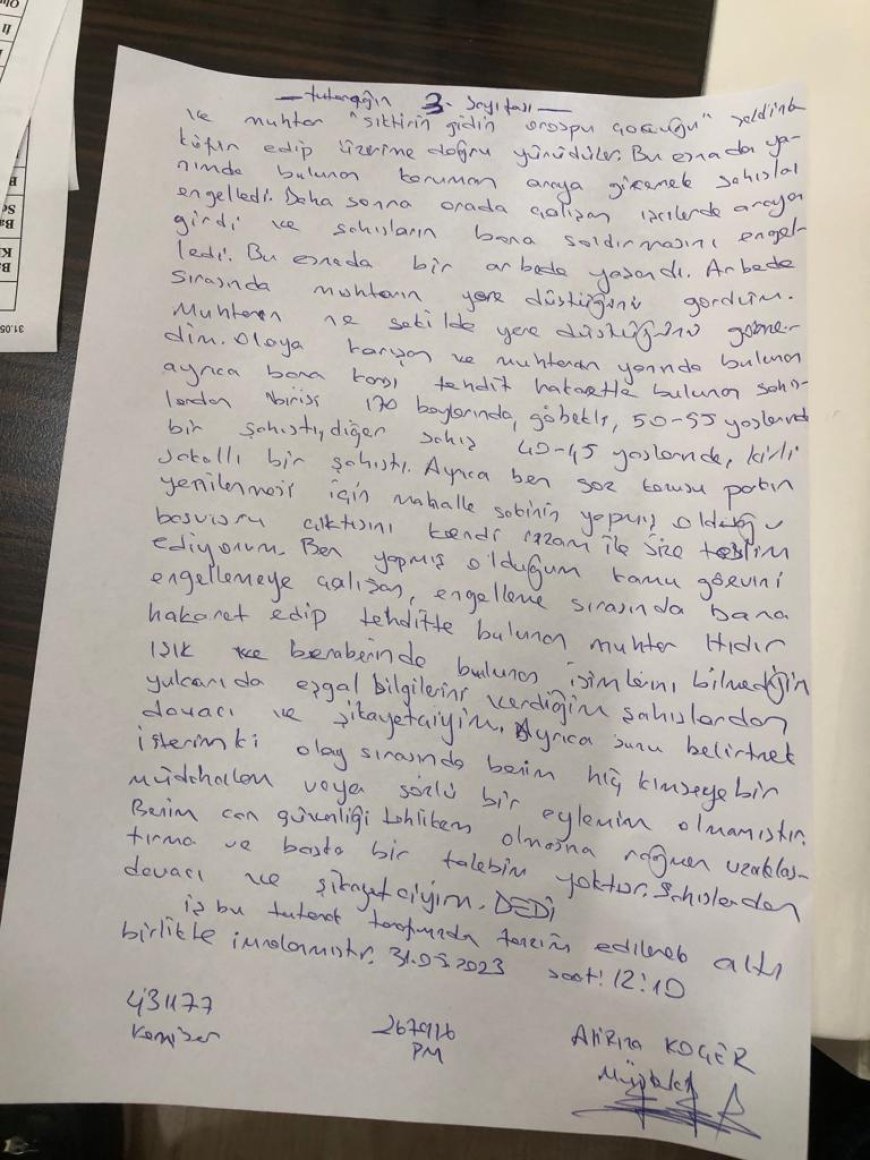 — tutanağın 3. sayfası —
ve muhtar "siktirin gidin orospu çocuğu" şeklinde
küfür edip üzerime doğru yürüdüler. Bu esnada ya-
nımda bulunan korumam araya girerek şahısları
engelledi. Daha sonra orada çalışan işcilerde araya
girdi ve şahısların bana saldırmasını engel-
ledi. Bu esnada bir arbede yaşandı. Arbede
sırasında muhtarın yere düştüğünü gördüm.
Muhtarın ne şekilde yere düştüğünü görme-
dim. Olaya karışan ve muhtarın yanında bulunan
ayrıca bana karşı tehdit hakarette bulunan şahıs-
lardan birisi 170 boylarında, göbekli, 50-55 yaşlarında
bir şahıstı, diğer şahıs 40-45 yaşlarında, kirli
sakallı bir şahıstı. Ayrıca ben söz konusu parkın
yenilenmesi için mahalle sakinin yapmış olduğu
başvuru çıktısını kendi rızam ile size teslim
ediyorum. Ben yapmış olduğum kamu görevini
engellemeye çalışan, engelleme sırasında bana
hakaret edip tehditte bulunan muhtar Hıdır
IŞIK ve beraberinde bulunan isimlerini bilmediğim
yukarıda eşgal bilgilerini verdiğim şahıslardan
davacı ve şikayetçiyim. Ayrıca şunu belirtmek
isterimki olay sırasında benim hiç kimseye bir
müdahalem veya sözlü bir eylemim olmamıştır.
Benim can güvenliği tehlikem olmasına rağmen uzaklaş-
tırma ve başka bir talebim yoktur. Şahıslardan
davacı ve şikayetçiyim. DEDİ
iş bu tutanak tarafımızda tanzim edilerek altı
birlikte imzalanmıştır. 31.05.2023 saat: 12:10
431177 267916 Ali Rıza KOÇER
Komiser PM Müşteki
31.05